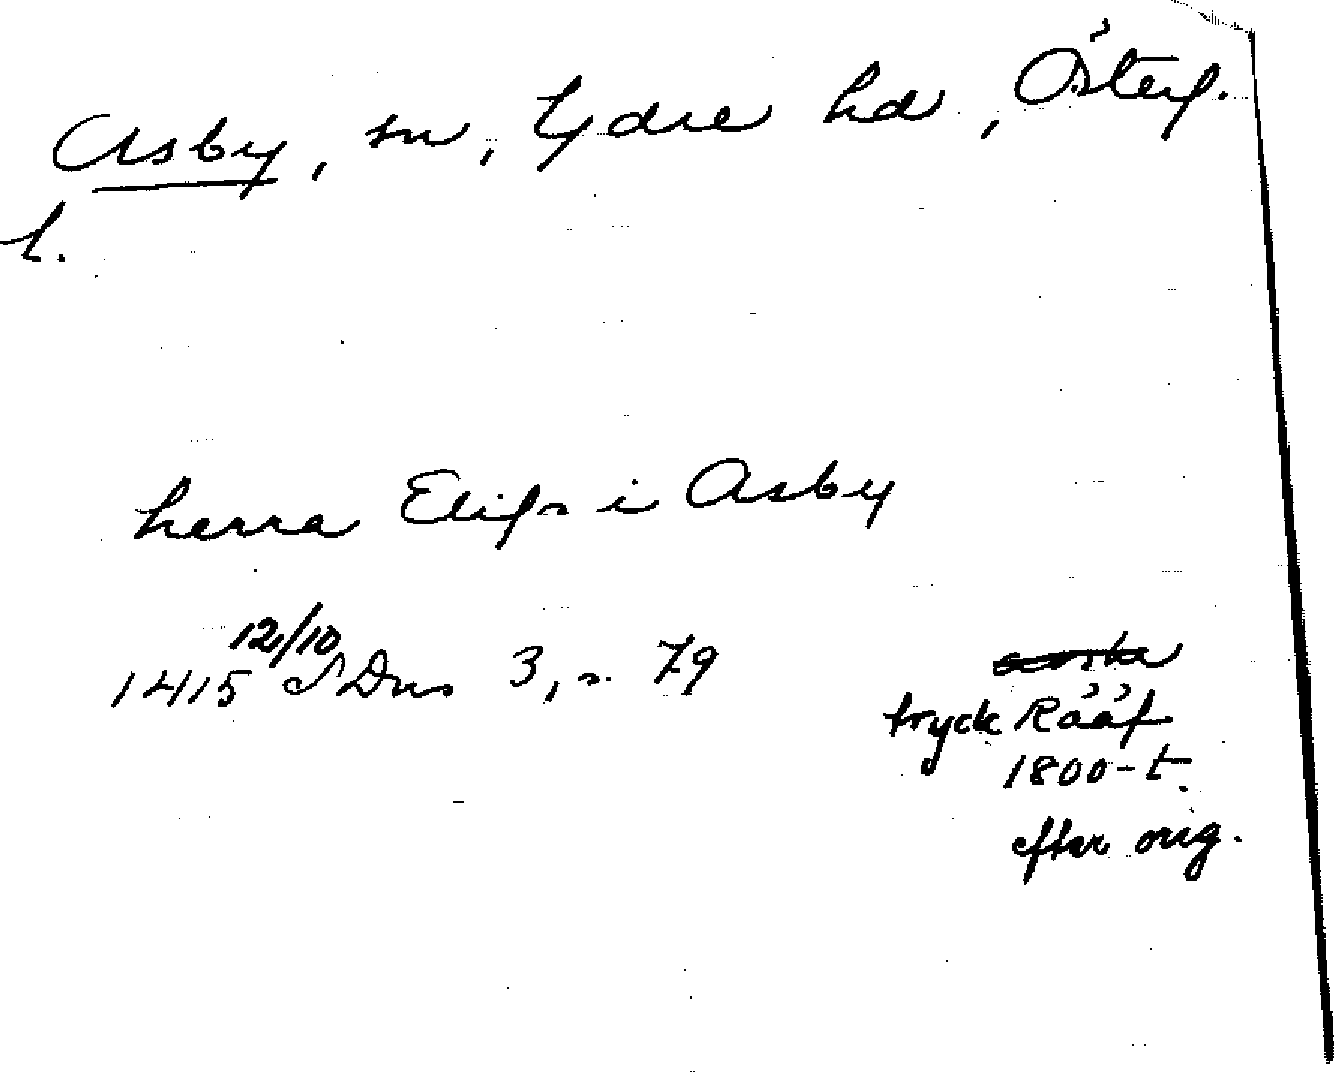 Asby, sn, Ydre hd, Österg.
l.
herra Elifs i Asby
12/10
1415 SDns 3, s. 79
tryck Rääf
1800-t.
efter orig.